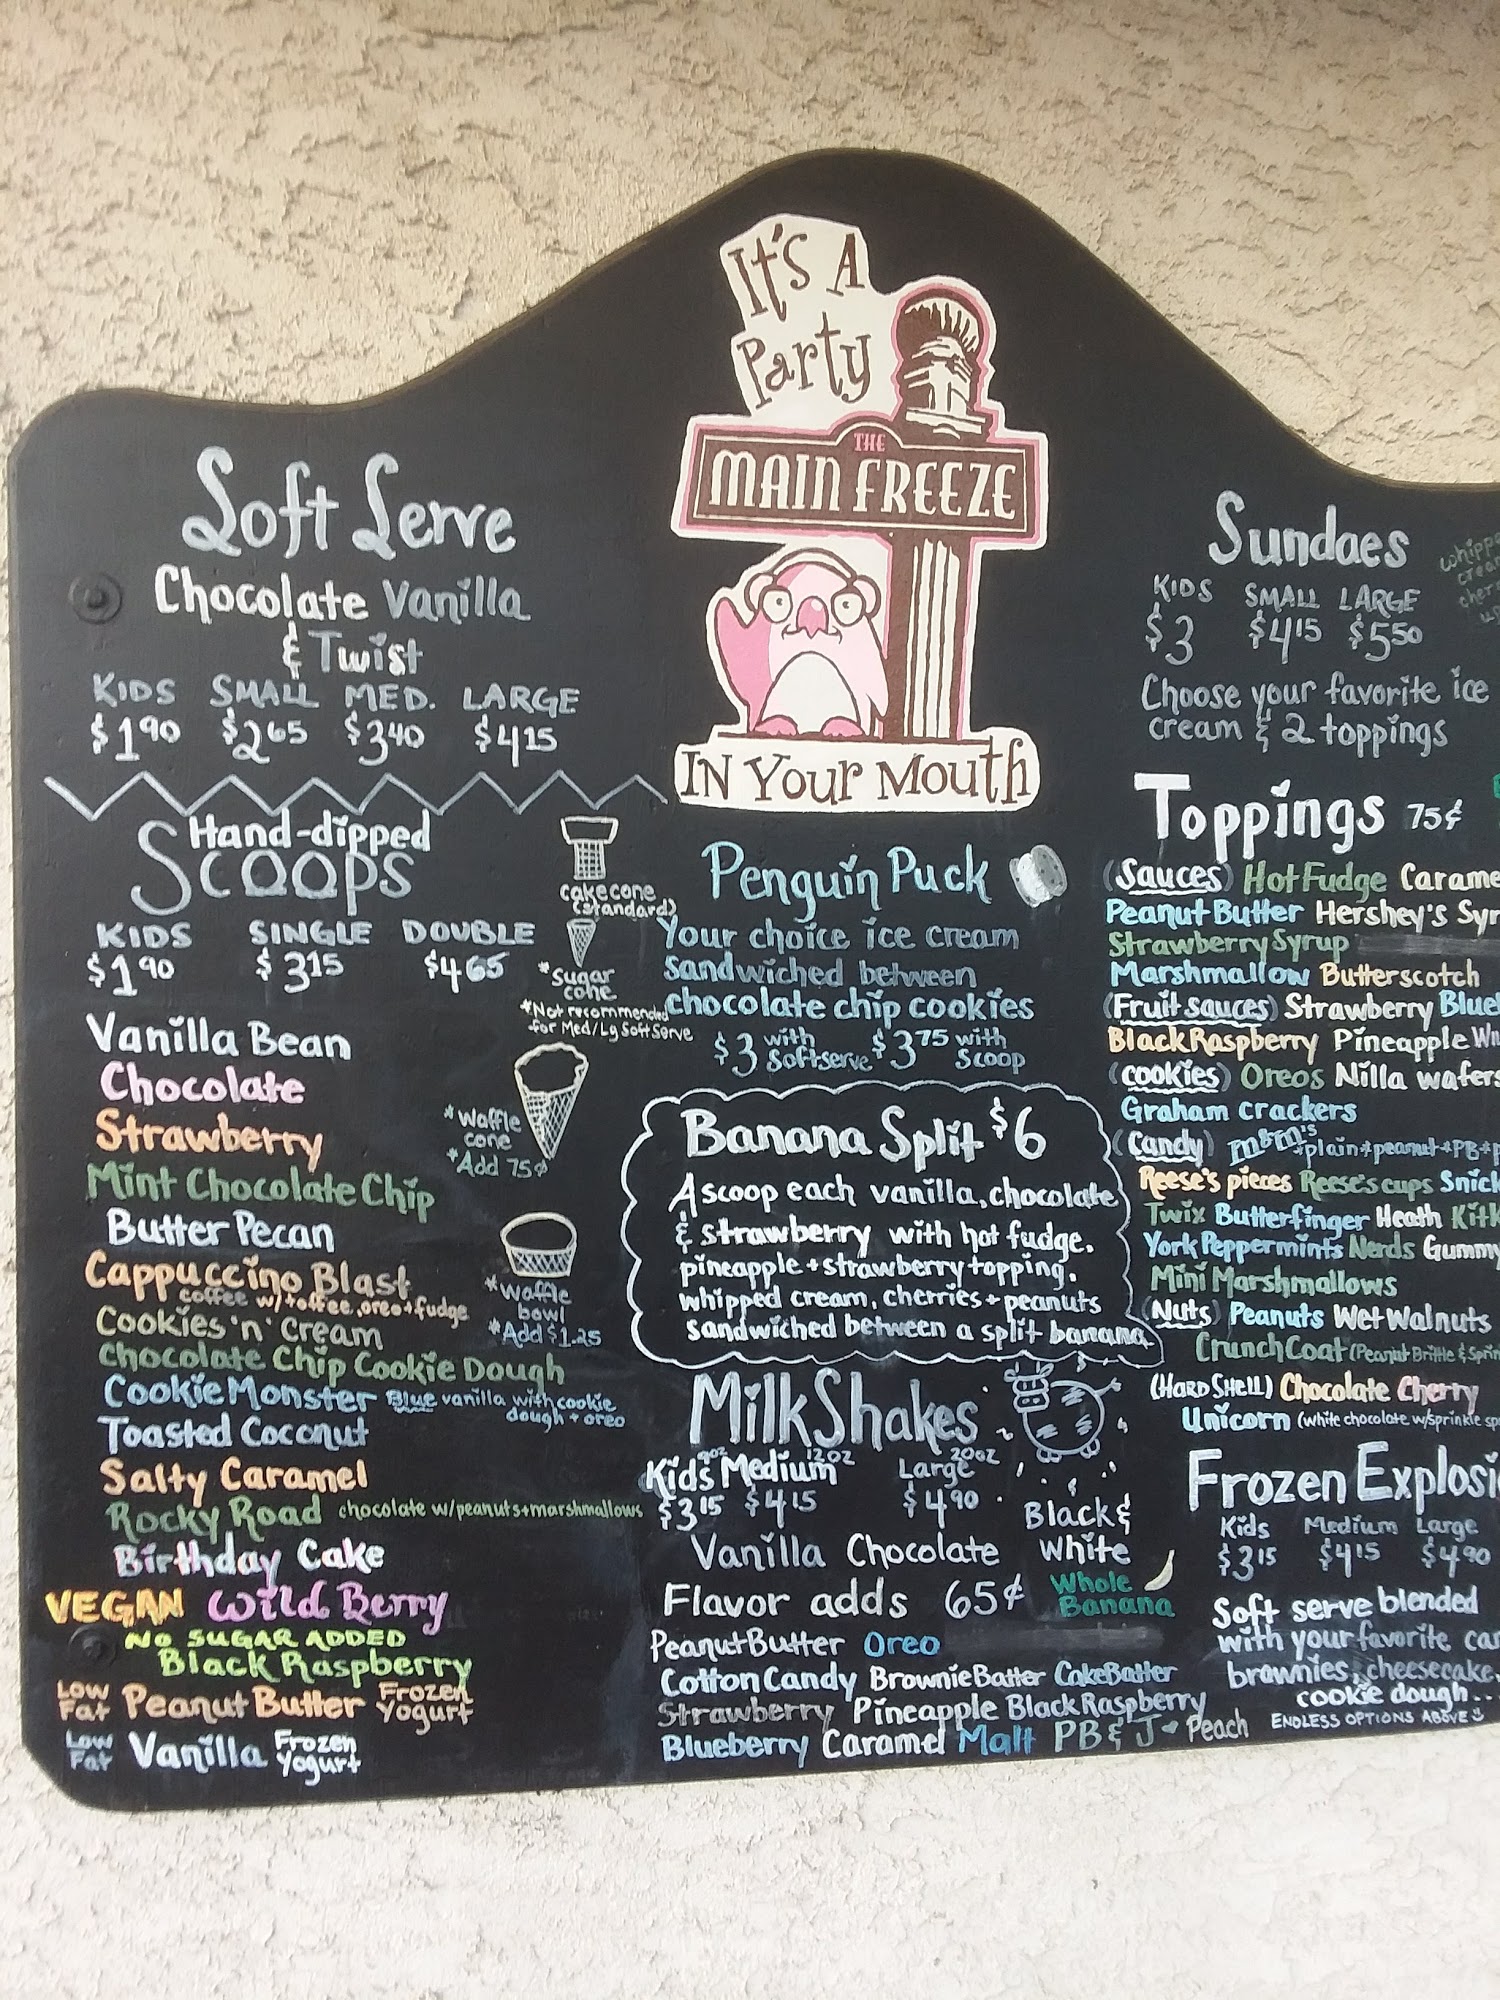 It's A
Party
THE
MAIN FREEZE
IN Your Mouth
Soft Serve
Chocolate Vanilla
& Twist
KIDS SMALL MED. LARGE
$1.90 $2.65 $3.40 $4.15
Hand-dipped
Scoops
KIDS SINGLE DOUBLE
$1.90 $3.15 $4.65
Vanilla Bean
Chocolate
Strawberry
Mint Chocolate Chip
Butter Pecan
Cappuccino Blast
coffee w/toffee, oreo+fudge
Cookies 'n' Cream
Chocolate Chip Cookie Dough
Cookie Monster Blue vanilla with cookie
dough + oreo
Toasted Coconut
Salty Caramel
Rocky Road chocolate w/peanuts+marshmallows
Birthday Cake
VEGAN Wild Berry
No SUGAR ADDED
Black Raspberry
Low Fat Peanut Butter Frozen Yogurt
Low Fat Vanilla Frozen Yogurt
cake cone
(standard)
*Sugar
cone
*Not recommended
for Med/Lg Soft Serve
*Waffle
cone
*Add 75¢
*Waffle
bowl
*Add $1.25
Penguin Puck
Your choice ice cream
sandwiched between
chocolate chip cookies
$3 with Softserve $3.75 with Scoop
Banana Split $6
A scoop each vanilla, chocolate
& strawberry with hot fudge,
pineapple + strawberry topping,
whipped cream, cherries + peanuts
sandwiched between a split banana
MilkShakes
Kids 9oz Medium 12oz Large 20oz
$3.15 $4.15 $4.90
Black &
White
Vanilla Chocolate
Flavor adds 65¢
Whole
Banana
Peanut Butter Oreo
Cotton Candy Brownie Batter Cake Batter
Strawberry Pineapple Black Raspberry
Blueberry Caramel Malt PB & J Peach
Sundaes
KIDS SMALL LARGE
$3 $4.15 $5.50
Choose your favorite ice
cream & 2 toppings
Toppings 75¢
(Sauces) Hot Fudge Carame
Peanut Butter Hershey's Syr
Strawberry Syrup
Marshmallow Butterscotch
(Fruit sauces) Strawberry Blue
Black Raspberry Pineapple
(cookies) Oreos Nilla wafers
Graham crackers
(Candy) m&m's *plain*peanut*PB*
Reese's pieces Reese's cups Snick
Twix Butterfinger Heath Kitk
York Peppermints Nerds Gummy
Mini Marshmallows
(Nuts) Peanuts Wet Walnuts
Crunch Coat (Peanut Brittle & Sprin
(HARD SHELL) Chocolate Cherry
Unicorn (white chocolate w/sprinkle
Frozen Explosi
Kids Medium Large
$3.15 $4.15 $4.90
Soft serve blended
with your favorite
brownies, cheesecake,
cookie dough...
ENDLESS OPTIONS ABOVE